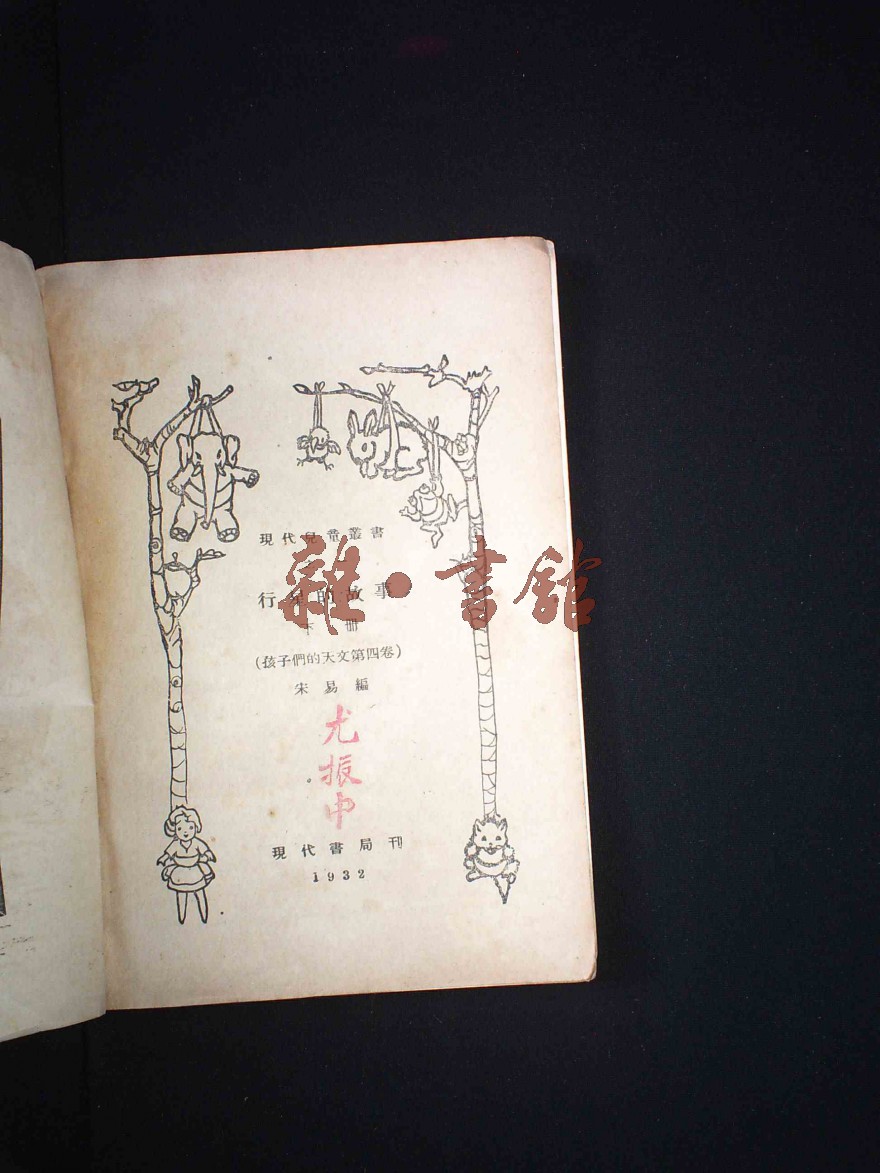 現代兒童叢書
行星的故事
下冊
(孩子們的天文第四卷)
宋易編
尤振中
現代書局刊
1932
雜·書館